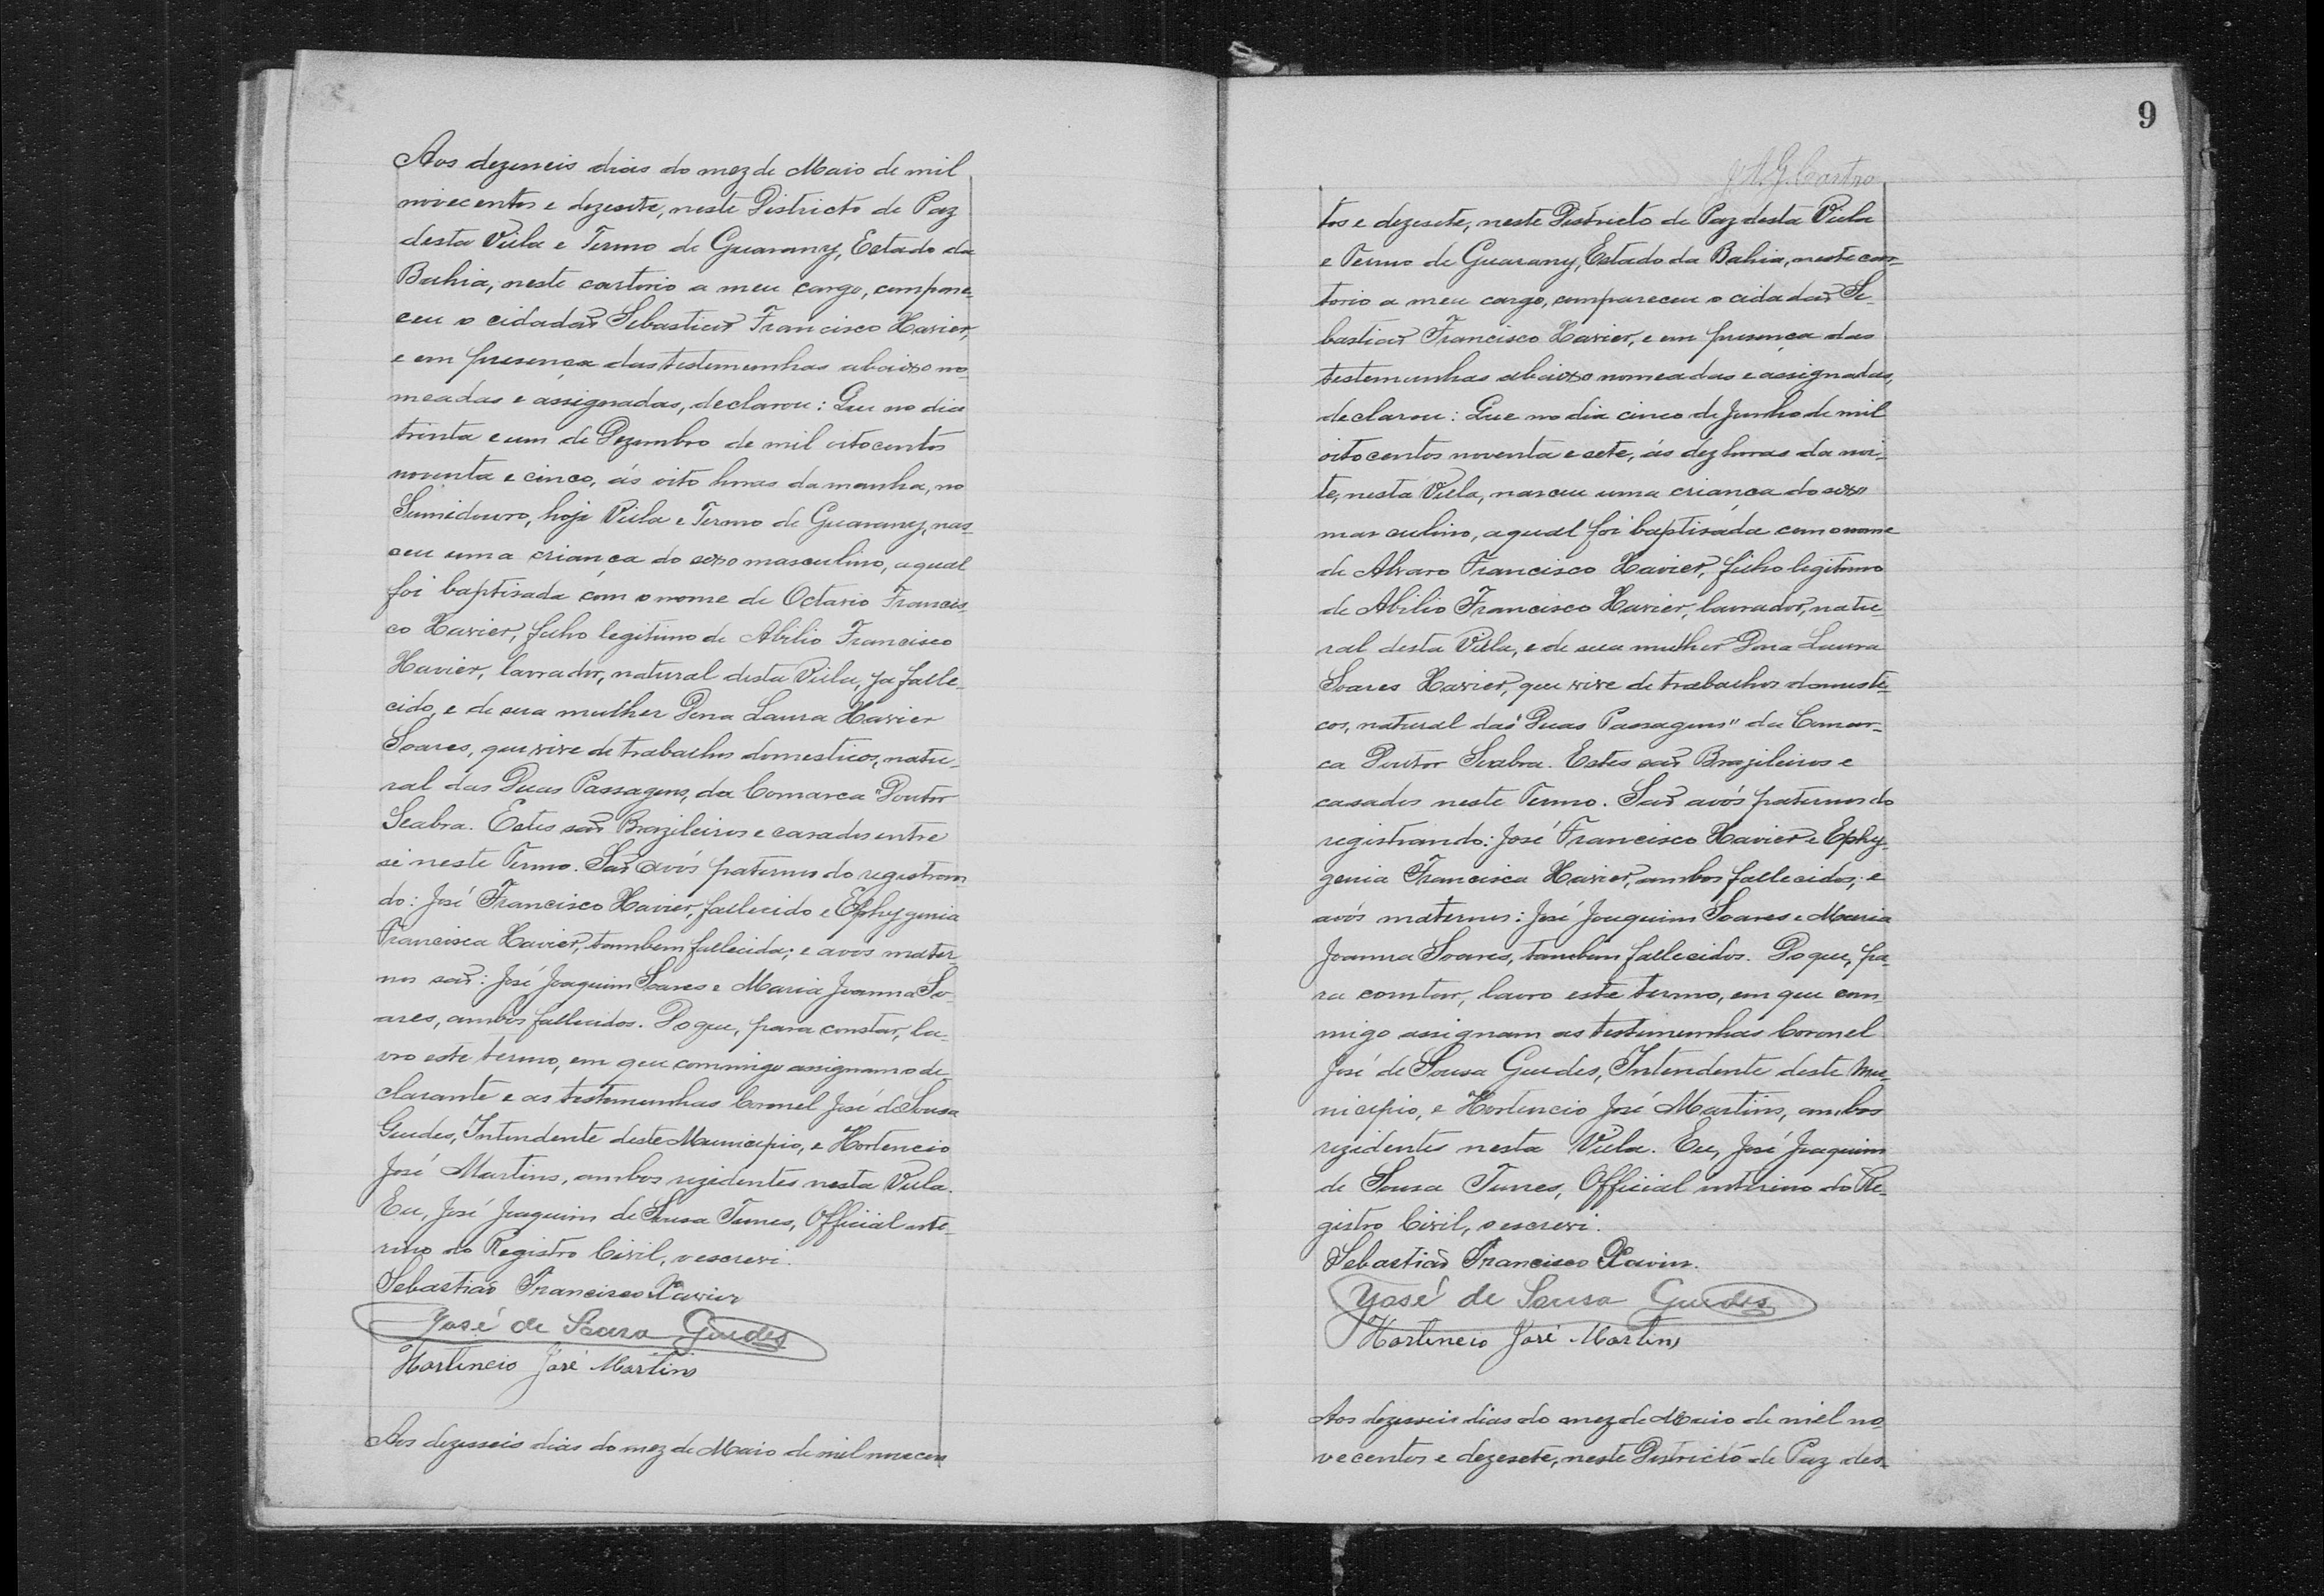 Aos dezeseis dias do mez de Maio de mil
novecentos e dezesete, neste Districto de Paz
desta Villa e Termo de Guarany, Estado da
Bahia, neste cartorio a meu cargo, compare-
ceu o cidadão Sebastião Francisco Xavier,
e em presença das testemunhas abaixo no-
meadas e assignadas, declarou: Que no dia
trinta e um de Dezembro de mil oitocentos
noventa e cinco, ás oito horas da manha, no
Sumidouro, hoje Villa e Termo de Guarany, nas-
ceu uma criança do sexo masculino, a qual
foi baptisada com o nome de Octavio Francis-
co Xavier, filho legitimo de Abilio Francisco
Xavier, lavrador, natural desta Villa, ja falle-
cido, e de sua mulher Dona Laura Xavier
Soares, que vive de trabalhos domesticos, natu-
ral das Duas Passagens, da Comarca "Doutor
Seabra. Estes são Brazileiros e casados entre
si neste Termo. São avós paternos do registran-
do: José Francisco Xavier, fallecido e Ephygenia
Francisca Xavier, tambem fallecida; e avos mater-
nos são: José Joaquim Soares e Maria Joanna So-
ares, ambos fallecidos. Do que, para constar, la-
vro este termo, em que commigo assignam o de-
clarante e as testemunhas Coronel José de Sousa
Guedes, Intendente deste Municipio, e Hortencio
José Martins, ambos rezidentes nesta Villa.
Eu, José Joaquim de Sousa Tunes, Official inte-
rino do Registro Civil, o escrevi.
Sebastião Francisco Xavier
José de Sousa Guedes
Hortencio José Martins
Aos dezesseis dias do mez de Maio de mil novecen
9
J. A. G. Castro
tos e dezesete, neste Districto de Paz desta Villa
e Termo de Guarany, Estado da Bahia, neste car-
torio a meu cargo, compareceu o cidadão Se-
bastião Francisco Xavier, e em presença das
testemunhas abaixo nomeadas e assignadas,
declarou: Que no dia cinco de Junho de mil
oitocentos noventa e sete, ás dez horas da noi-
te, nesta Villa, nasceu uma criança do sexo
masculino, a qual foi baptisada com o nome
de Alvaro Francisco Xavier, filho legitimo
de Abilio Francisco Xavier, lavrador, natu-
ral desta Villa, e de sua mulher Dona Laura
Soares Xavier, que vive de trabalhos domesti-
cos, natural das "Duas Passagens" da Comar-
ca Doutor Seabra. Estes são Brazileiros e
casados neste Termo. São avós paternos do
registrando: José Francisco Xavier e Ephy-
genia Francisca Xavier, ambos fallecidos; e
avós maternos: José Joaquim Soares e Maria
Joanna Soares, tambem fallecidos. Do que, pa-
ra constar, lavro este termo, em que com-
migo assignam as testemunhas Coronel
José de Sousa Guedes, Intendente deste Mu-
nicipio, e Hortencio José Martins, ambos
rezidentes nesta Villa. Eu, José Joaquim
de Sousa Tunes, Official interino do Re-
gistro Civil, o escrevi.
Sebastião Francisco Xavier.
José de Sousa Guedes
Hortencio José Martins
Aos dezesseis dias do mez de Maio de mil no
vecentos e dezesete, neste Districto de Paz des-